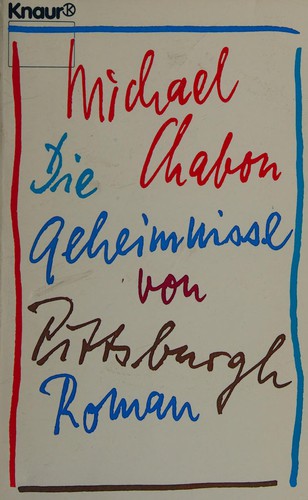 Knaur
Michael
Chabon
Die
Geheimnisse
von
Pittsburgh
Roman